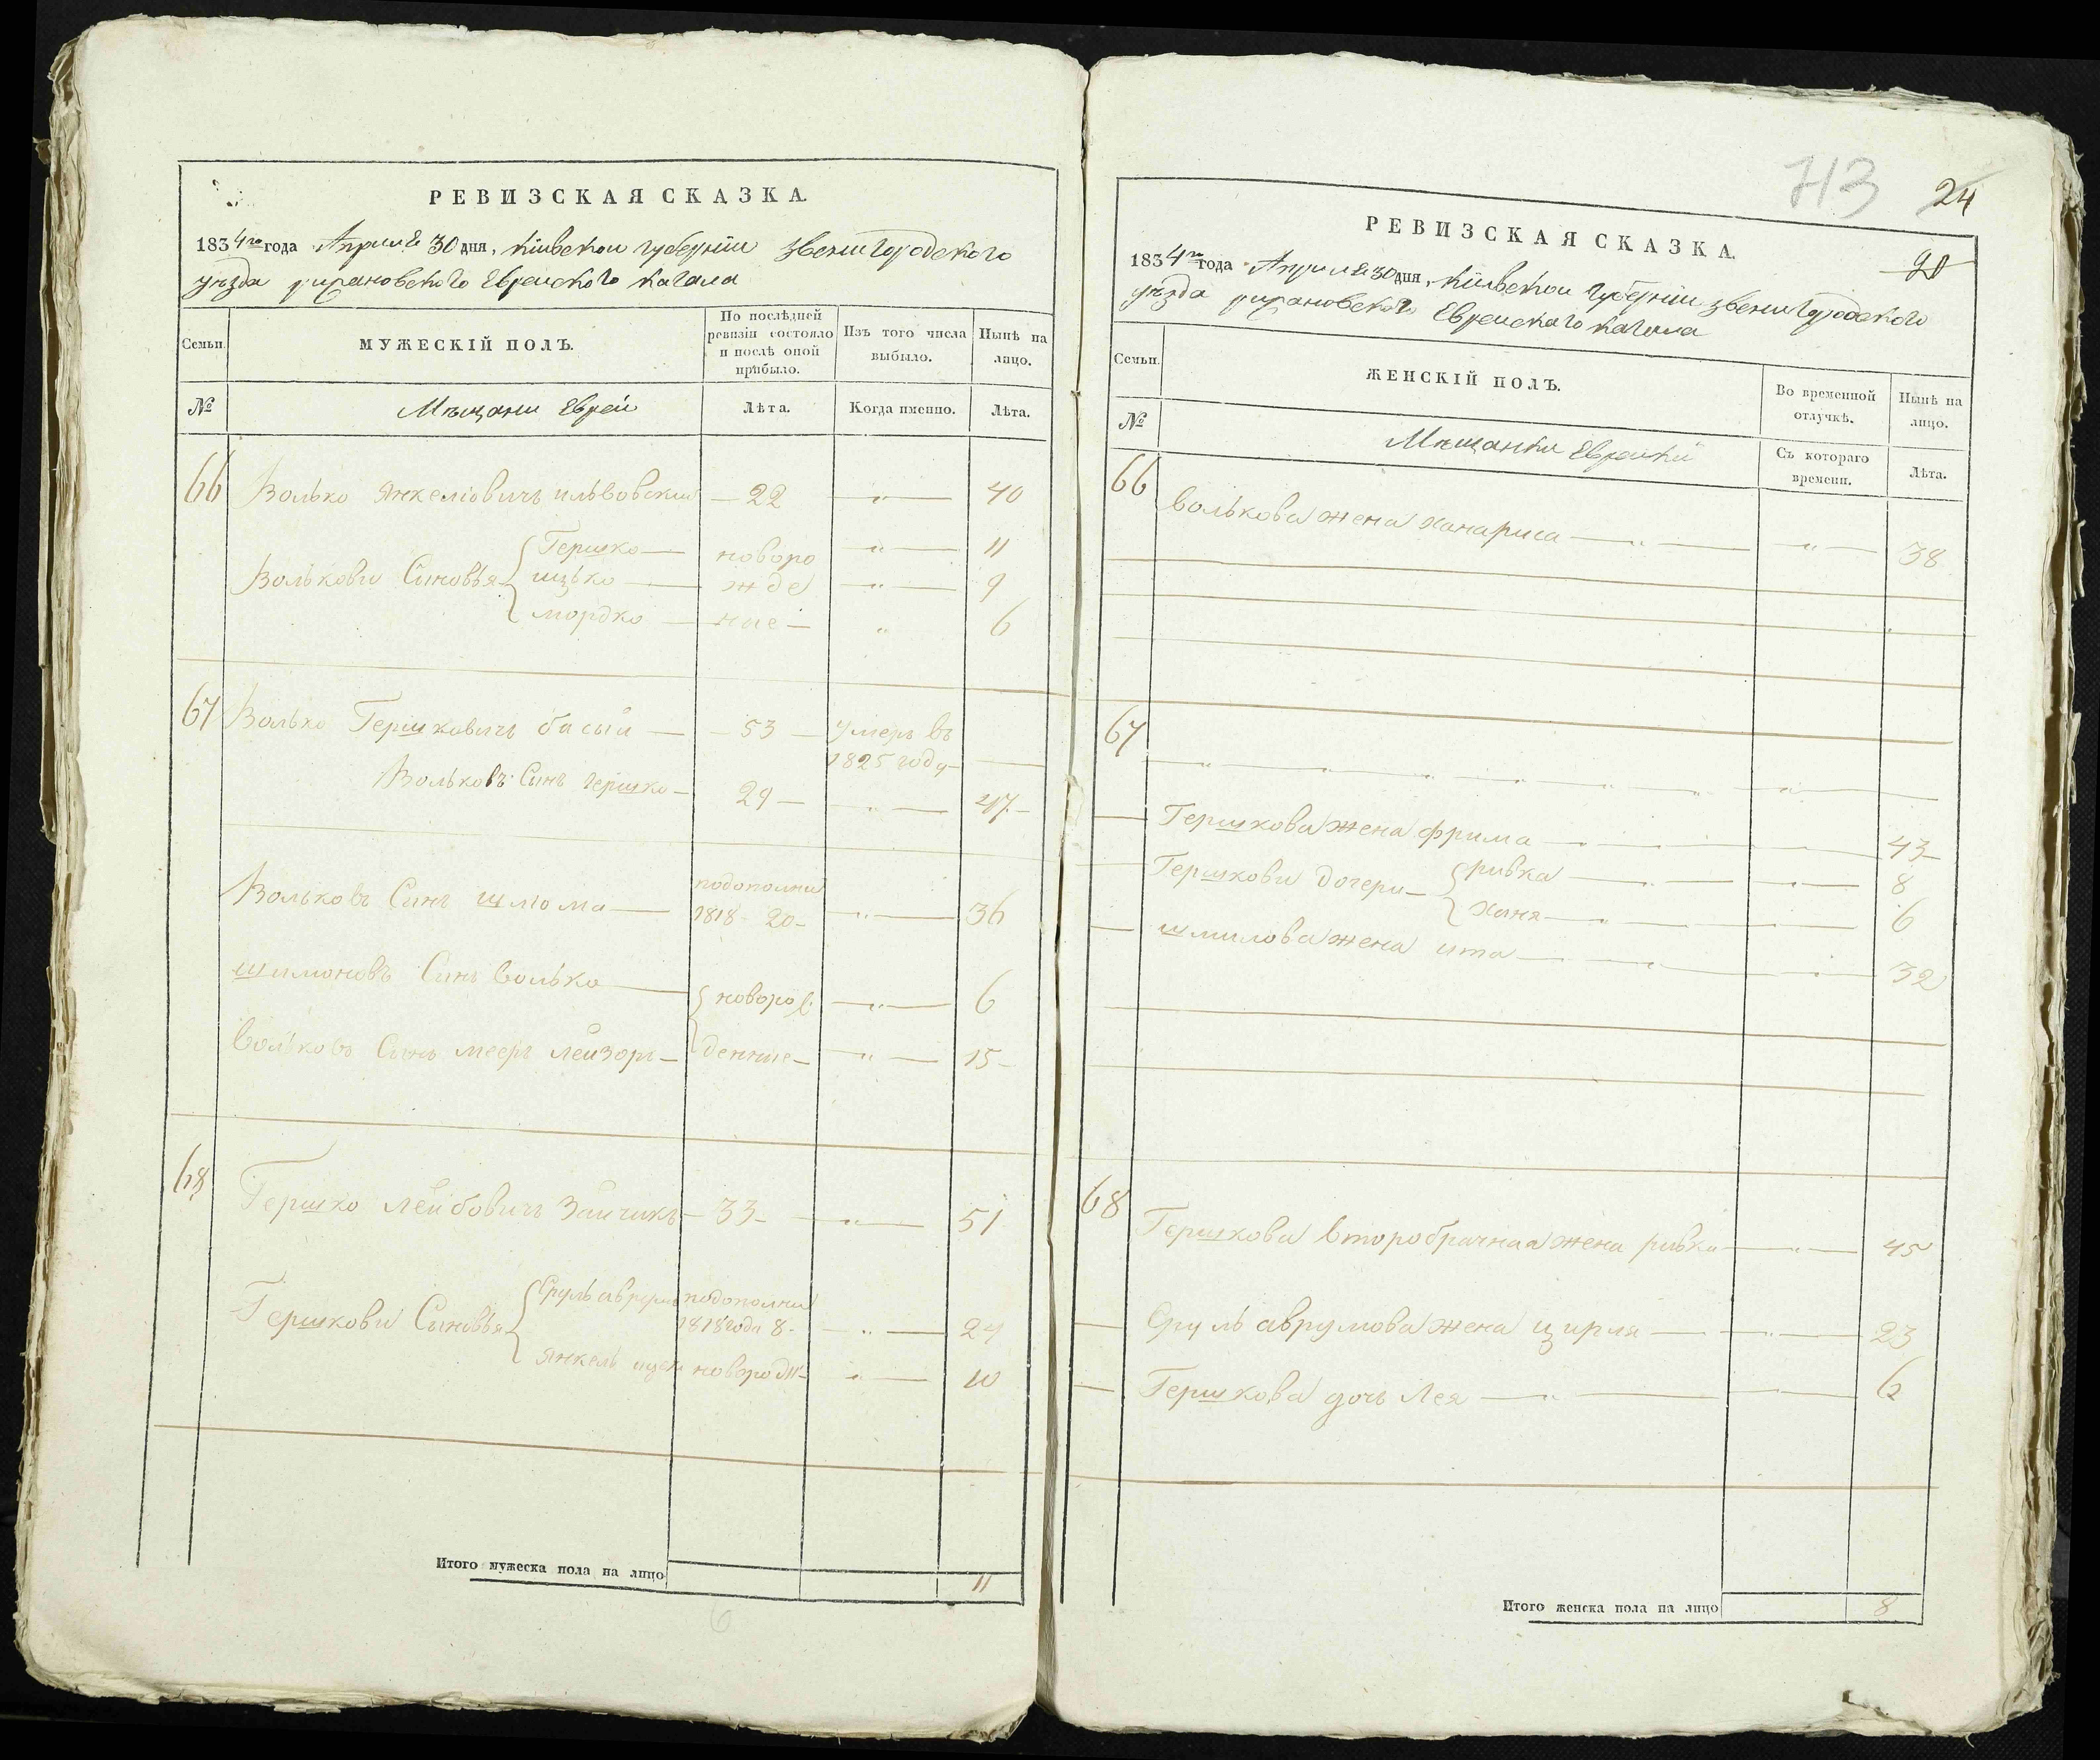 РЕВИЗСКАЯ СКАЗКА.
1834го года Апреля 30 дня, Кіивской губерніи Звенигородского
уезда рижановского Еврейского кагала
Семьи.
МУЖЕСКІЙ ПОЛЪ.
По послѣдней ревизіи состояло и послѣ оной прибыло.
Изъ того числа выбыло.
Нынѣ на лицо.
№
Мещани Евреи
Лѣта.
Когда именно.
Лѣта.
66 Волько Янкеліовичъ ильвовский — 22 — 40
Гершко — новоро — 11
Волькови Сыновья ицько — жде — 9
мордко — ные — 6
67 Волько Гершковичъ басый — 53 — умеръ въ
1825 году —
Вольковъ Синъ гершко — 29 — 47 —
подополни
Вольковъ Синъ шлюма — 1818 20 — 36
шлимоновъ Синъ волько — новоро — 6
вольковъ Синъ мееръ лейзоръ — денные — 15 —
68 Гершко Лейбовичъ Зайчикъ — 33 — 51
Сруль аврумъ подополни
Гершкови Сыновья 1818 года 8 — 24
Янкель ицко новорож — 10
Итого мужеска пола на лицо 11
6
713 24
20
РЕВИЗСКАЯ СКАЗКА.
1834го года Апреля 30 дня, Кіивской губерніи звенигородского
уезда рижановского Еврейского кагала
Семьи.
ЖЕНСКІЙ ПОЛЪ.
Во временной отлучкѣ.
Нынѣ на лицо.
№
Мещанки Еврейки
Съ котораго времени.
Лѣта.
66 волькова жена ханариса — 38
67
Гершкова жена фрима — 43 —
Гершкови дочери — ривка — 8
ханя — 6
шмилова жена ита — 32
68 Гершкова второбрачная жена ривка — 45
Сруль аврумова жена цирля — 23
Гершкова дочь Лея — 6
Итого женска пола на лицо 8